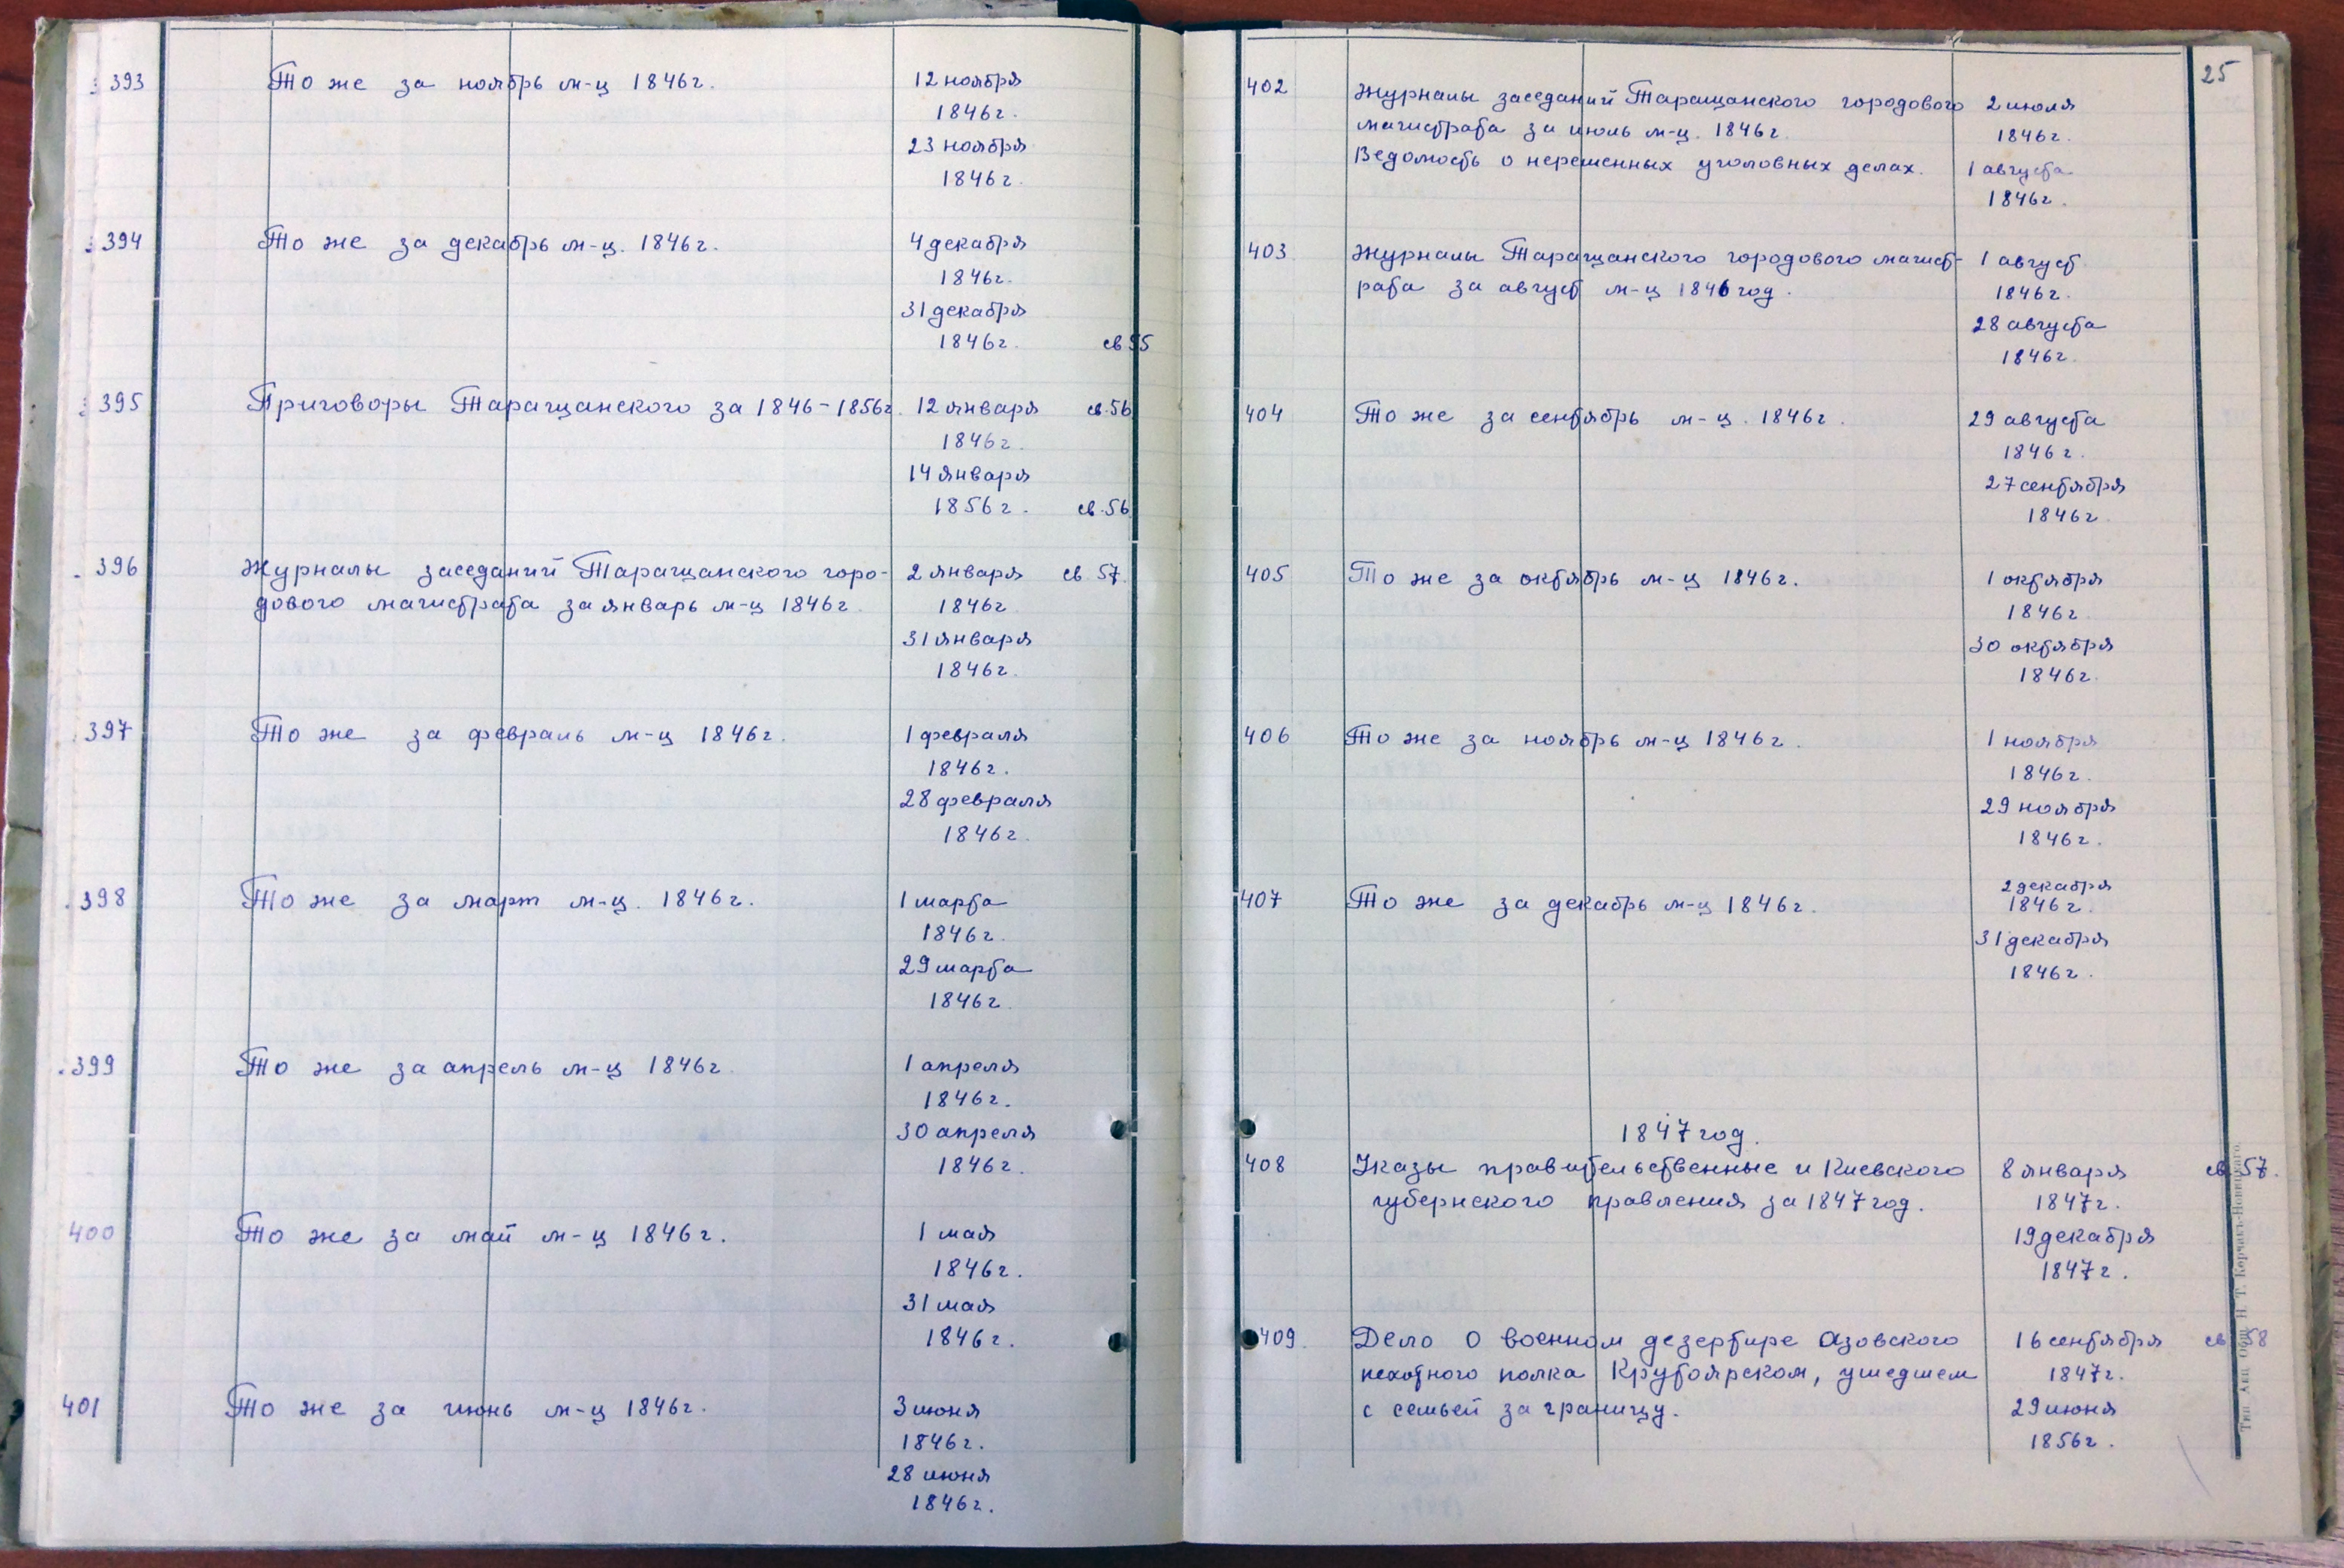 393 То же за ноябрь м-ц 1846г. 12 ноября
1846г.
23 ноября
1846г.
394 То же за декабрь м-ц. 1846г. 4 декабря
1846г.
31 декабря
1846г. св 55
395 Приговоры Таращанского за 1846-1856г. 12 января св.56
1846г.
14 января
1856г. св.56
396 Журналы заседаний Таращанского горо- 2 января св. 57.
дового магистрата за январь м-ц 1846г. 1846г
31 января
1846г.
397 То же за февраль м-ц 1846г. 1 февраля
1846г.
28 февраля
1846г.
398 То же за март м-ц. 1846г. 1 марта
1846г.
29 марта
1846г.
399 То же за апрель м-ц 1846г. 1 апреля
1846г.
30 апреля
1846г.
400 То же за май м-ц 1846г. 1 мая
1846г.
31 мая
1846г.
401 То же за июнь м-ц 1846г. 3 июня
1846г.
28 июня
1846г.
25
402 Журналы заседаний Таращанского городового 2 июля
магистрата за июль м-ц. 1846г. 1846г.
Ведомость о нерешенных уголовных делах. 1 августа
1846г.
403 Журналы Таращанского городового магист- 1 август
рата за август м-ц 1846 год. 1846г.
28 августа
1846г.
404 То же за сентябрь м-ц. 1846г. 29 августа
1846г.
27 сентября
1846г
405 То же за октябрь м-ц 1846г. 1 октября
1846г.
30 октября
1846г.
406 То же за ноябрь м-ц 1846г. 1 ноября
1846г.
29 ноября
1846г.
407 То же за декабрь м-ц 1846г. 2 декабря
1846г.
31 декабря
1846г.
1847 год.
408 Указы правительственные и Киевского 8 января св 57.
губернского правления за 1847 год. 1847г.
19 декабря
1847г.
409. Дело о военном дезертире Азовского 16 сентября св 58
пехотного полка Крутоярском, ушедшем 1847г.
с семьей за границу. 29 июня
1856г.
Тип. Акц. Общ. Н. Т. Корчакъ-Новицкаго.